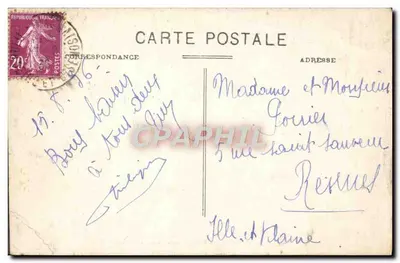 RÉPUBLIQUE FRANÇAISE
20
POSTES
CARTE POSTALE
CORRESPONDANCE
ADRESSE
Bons baisers
à tous deux
CPAPHIL
Madame et Monsieur
Poirier
5 rue Saint Sauveur
Rennes
Ille et Vilaine